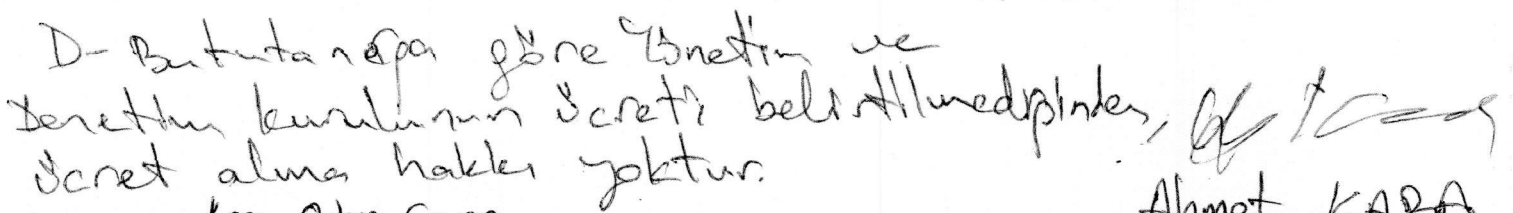 D- Bu tutanağa göre Yönetim ve
Denetim kurulunun ücreti belirtilmediğinden,
ücret alma hakkı yoktur.
Ahmet KARA